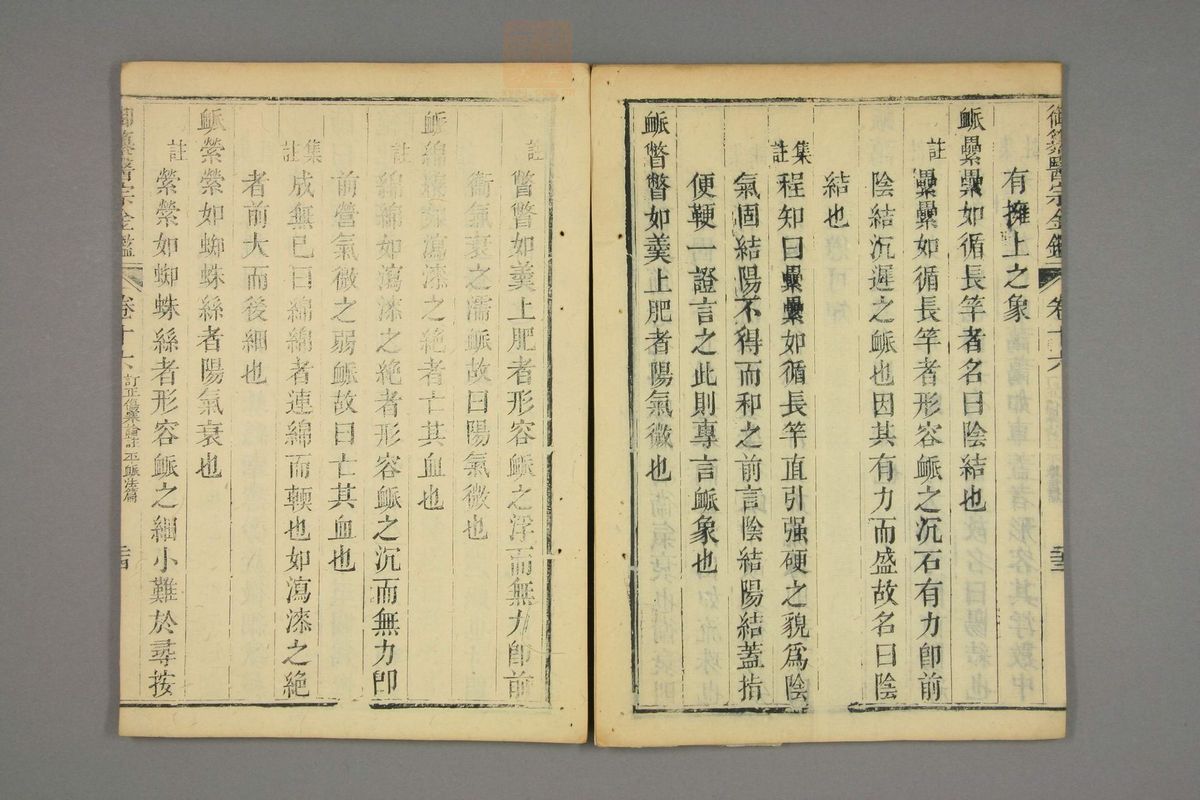 御纂醫宗金鑑 卷十六
有擁上之象
䘑纍纍如循長竿者名曰陰結也
註 纍纍如循長竿者形容䘑之沉石有力卽前
陰結沉遲之䘑也因其有力而盛故名曰陰
結也
集註 程知曰纍纍如循長竿直引强硬之貌爲陰
氣固結陽不得而和之前言陰結陽結蓋指
便鞕一證言之此則專言䘑象也
䘑瞥瞥如羹上肥者陽氣微也
註 瞥瞥如羹上肥者形容䘑之浮而無力卽前
衛氣衰之濡䘑故曰陽氣微也
䘑綿綿如瀉漆之絶者亡其血也
註 綿綿如瀉漆之絶者形容䘑之沉而無力卽
前營氣微之弱䘑故曰亡其血也
集註 成無已曰綿綿者連綿而輭也如瀉漆之絶
者前大而後細也
䘑縈縈如蜘蛛絲者陽氣衰也
註 縈縈如蜘蛛絲者形容䘑之細小難於尋按
御纂醫宗金鑑 卷十六 訂正傷寒論註 平䘑法篇 二十四